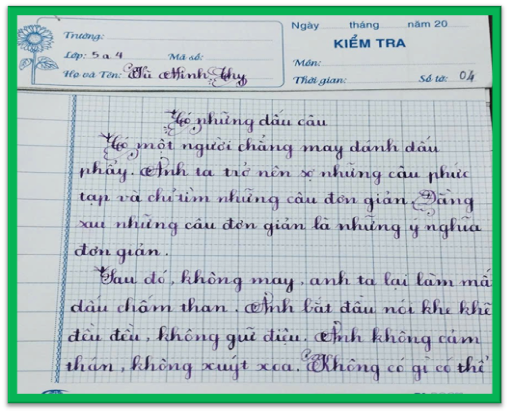 Trường:
Lớp: 5a4 Mã số:
Họ và Tên: Vũ Minh Thy
Ngày tháng năm 20
KIỂM TRA
Môn:
Thời gian: Số tờ: 04
Có những dấu câu
Có một người chẳng may đánh dấu
phẩy. Anh ta trở nên sợ những câu phức
tạp và chỉ tìm những câu đơn giản. Đằng
sau những câu đơn giản là những ý nghĩa
đơn giản.
Sau đó, không may, anh ta lại làm mấ
dấu chấm than. Anh bắt đầu nói khe khẽ
đều đều, không giữ điệu. Anh không cảm
thán, không xuýt xoa. Không có gì có thể